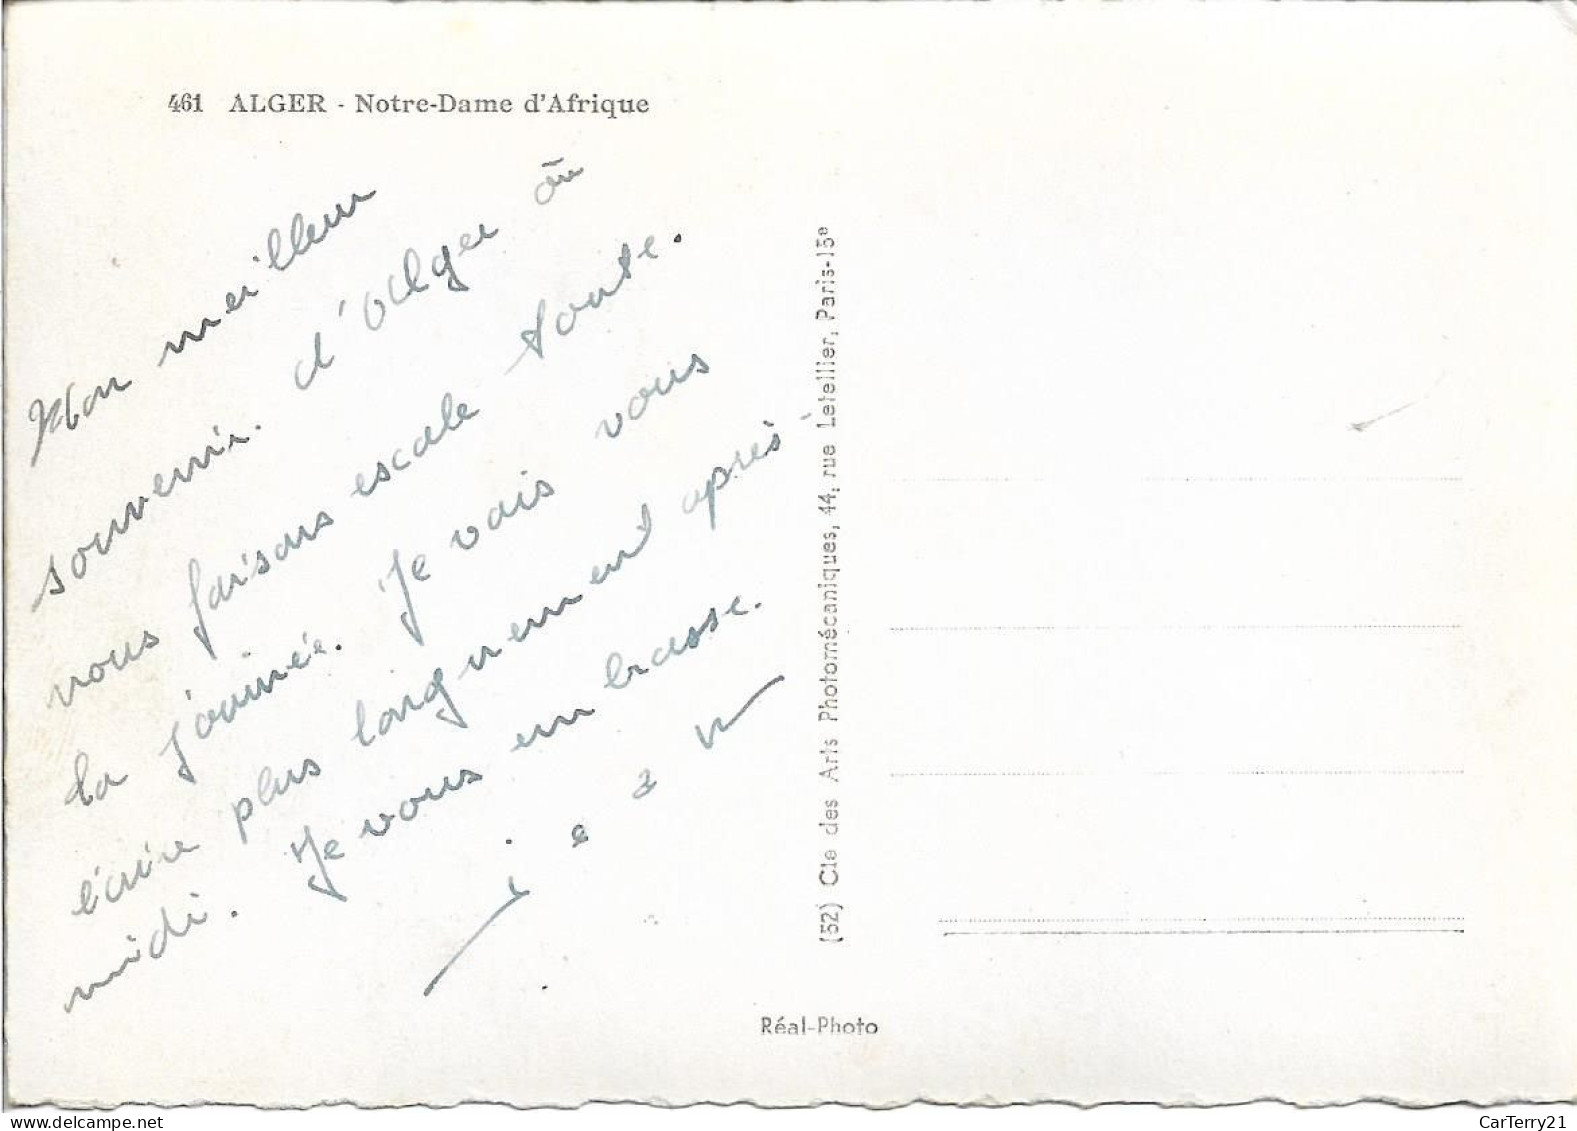 461 ALGER - Notre-Dame d'Afrique
Mon meilleur
souvenir. d'Alger où
nous faisons escale toute.
la journée. Je vais vous
écrire plus longuement après
midi. Je vous embrasse.
jean
(52) Cie des Arts Photomécaniques, 44, rue Letellier, Paris-15e
Réal-Photo
CarTerry21